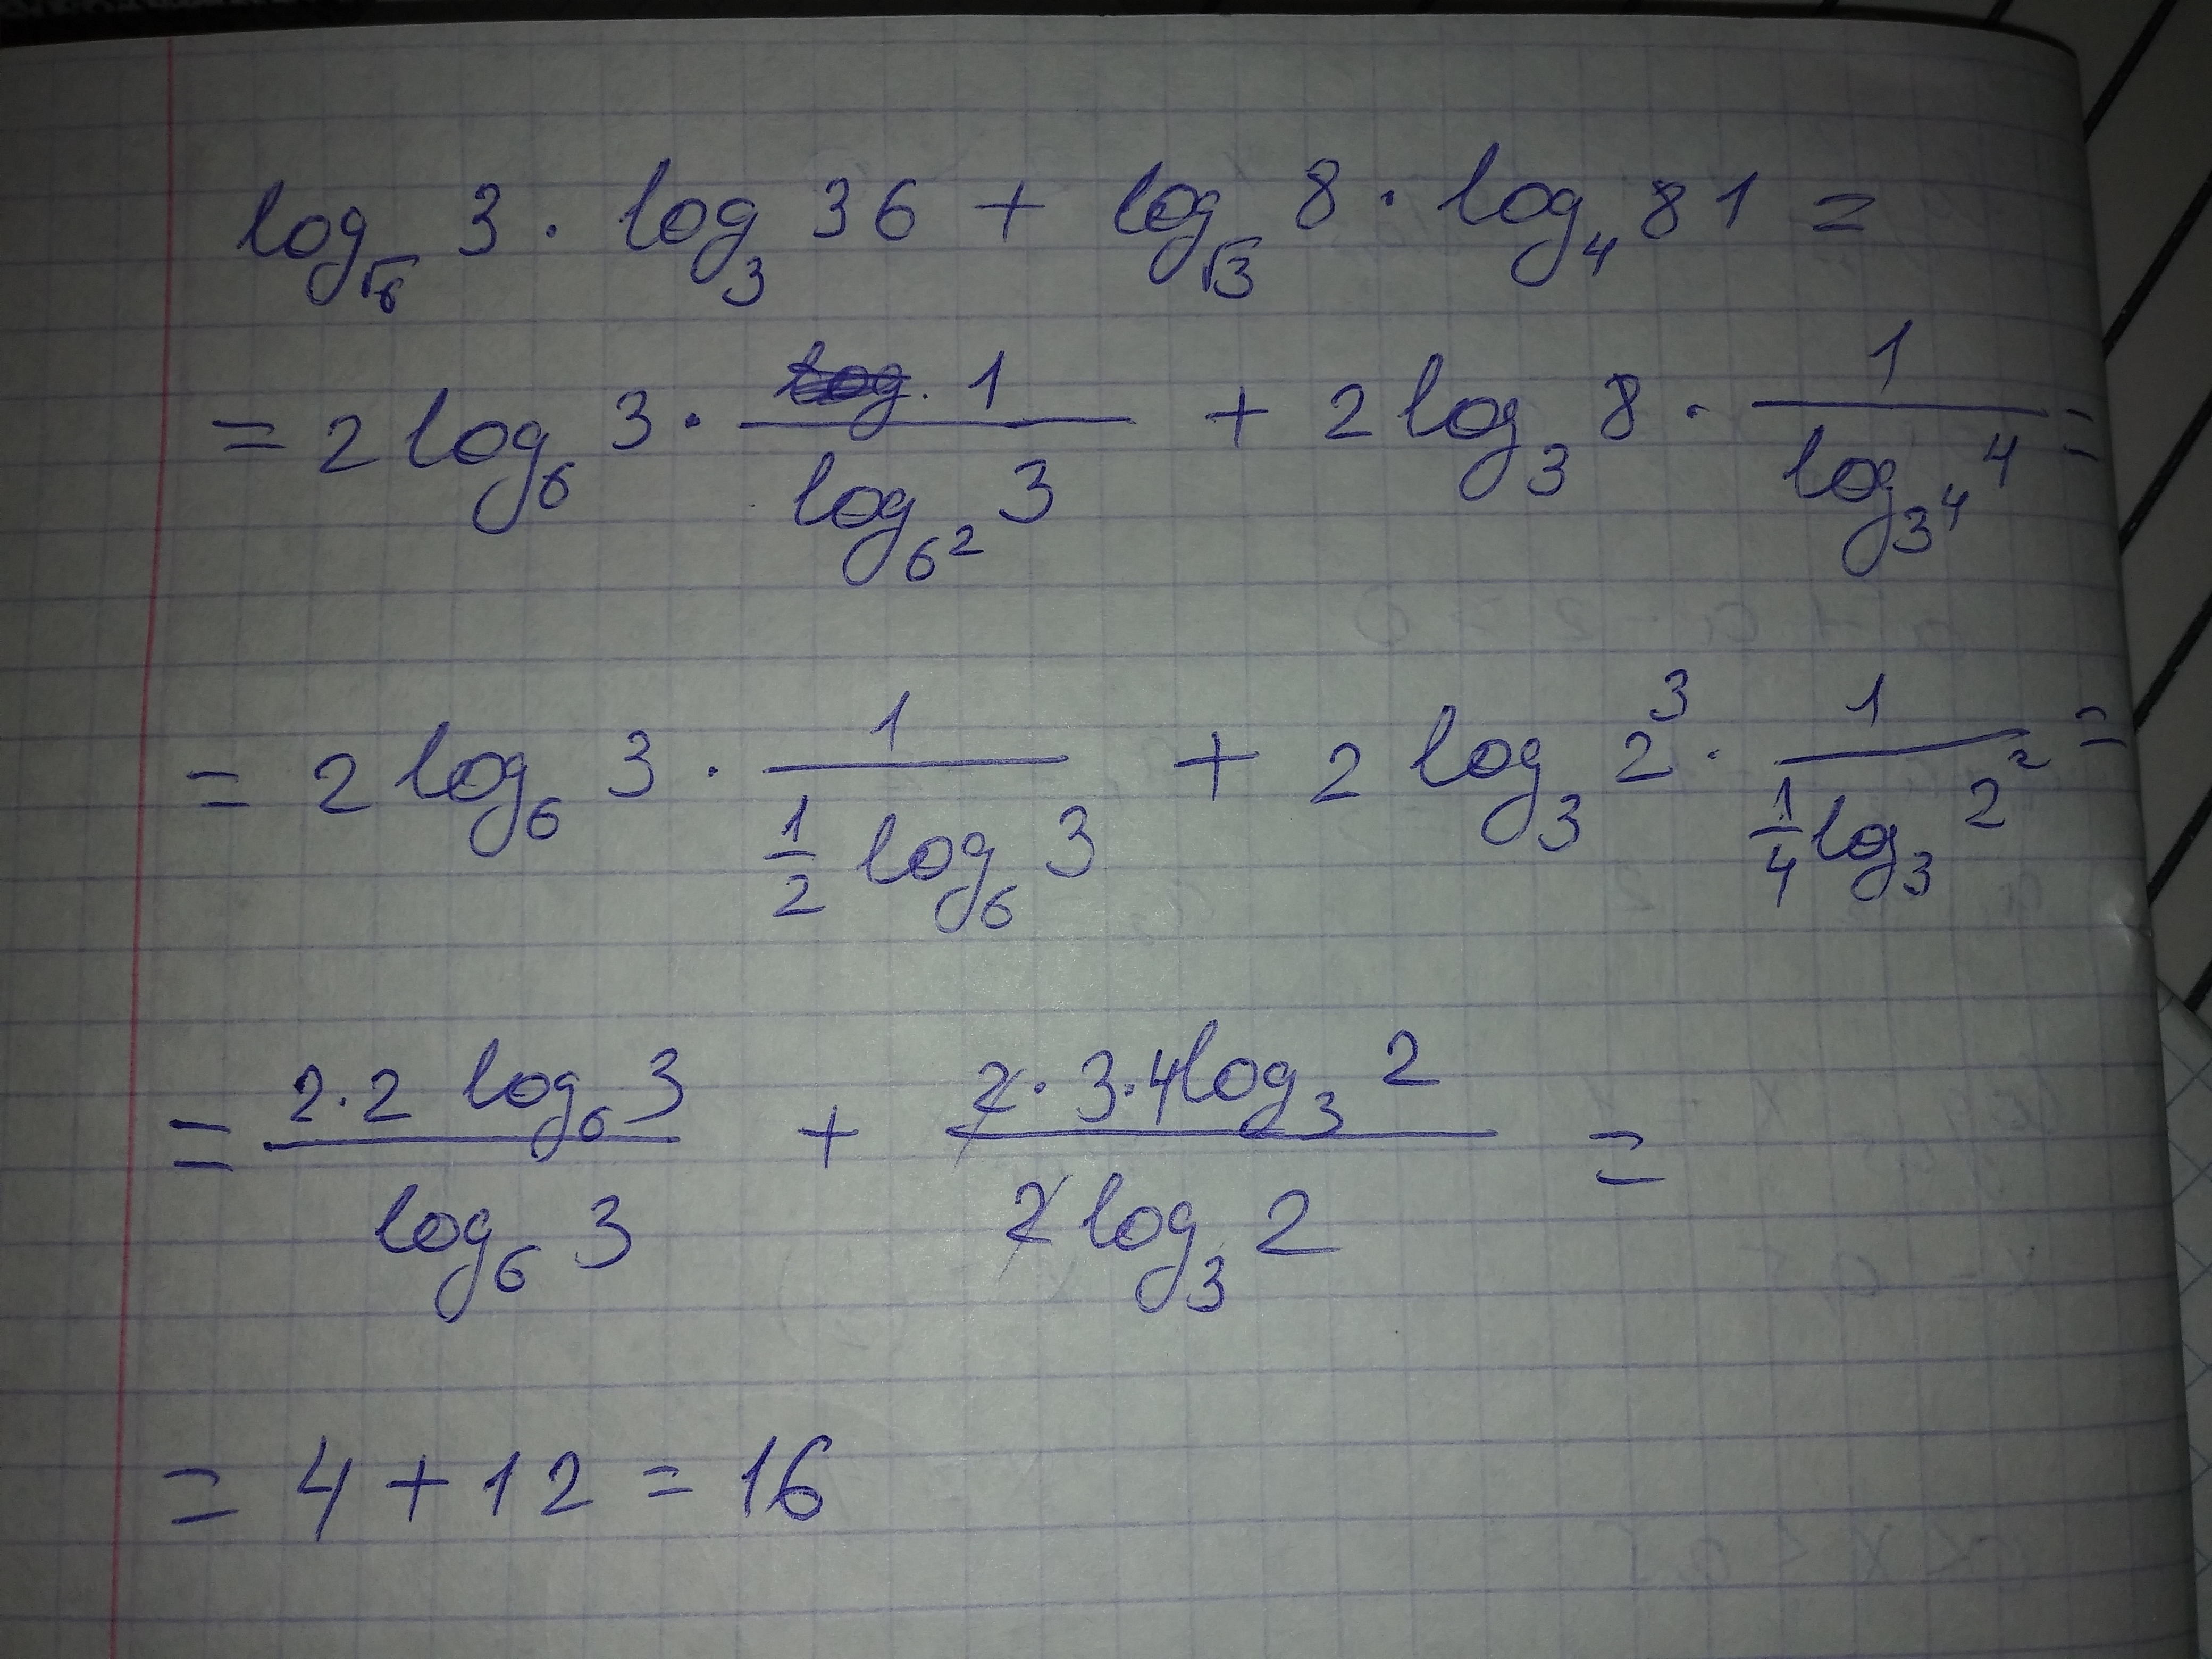 log_√6 3 · log_3 36 + log_√3 8 · log_4 81 =
= 2 log_6 3 · 1/(log_6² 3) + 2 log_3 8 · 1/(log_3⁴ 4) =
= 2 log_6 3 · 1/(1/2 log_6 3) + 2 log_3 2³ · 1/(1/4 log_3 2²) =
= (2·2 log_6 3)/(log_6 3) + (2·3·4 log_3 2)/(2 log_3 2) =
= 4 + 12 = 16